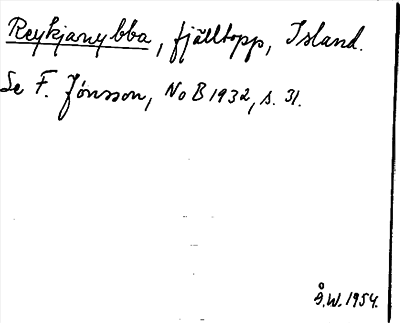 Reykjanybba, fjälltopp, Island.
Se F. Jónsson, NoB 1932, s. 31.
Å.W. 1954.